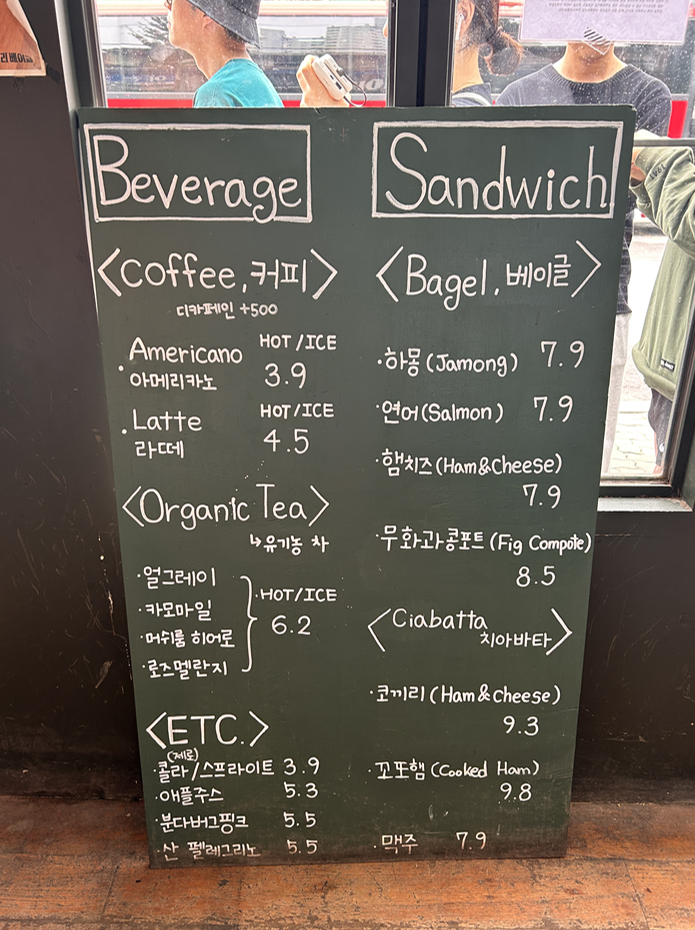 Beverage
<Coffee, 커피>
디카페인 +500
· Americano HOT/ICE
아메리카노 3.9
· Latte HOT/ICE
라떼 4.5
<Organic Tea>
↳유기농 차
·얼그레이
·카모마일
·머쉬룸 히어로
·로즈멜란지
·HOT/ICE
6.2
<ETC.>
(제로)
·콜라/스프라이트 3.9
·애플주스 5.3
·분다버그핑크 5.5
·산 펠레그리노 5.5
Sandwich
<Bagel, 베이글>
·하몽(Jamong) 7.9
·연어(Salmon) 7.9
·햄치즈(Ham&Cheese)
7.9
·무화과콩포트(Fig Compote)
8.5
<Ciabatta
치아바타>
·코끼리(Ham&Cheese)
9.3
·꼬또햄(Cooked Ham)
9.8
·맥주 7.9